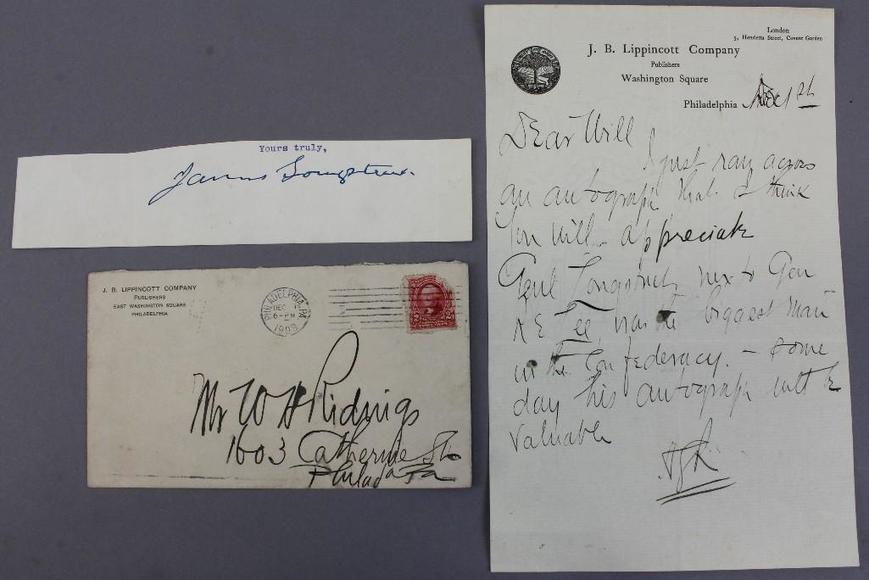 Yours truly,
James Longstreet.
J. B. LIPPINCOTT COMPANY
PUBLISHERS
EAST WASHINGTON SQUARE
PHILADELPHIA
PHILADELPHIA, PA.
DEC
6-PM
1903
Mr W H Ridings
1603 Catherine St.
Philada Pa
London
5, Henrietta Street, Covent Garden
J. B. Lippincott Company
Publishers
Washington Square
Philadelphia Dec 1st
Dear Will
I just ran across
an autograph that I think
you will appreciate
Genl Longstreet, next to Gen
R E Lee, was the biggest man
in the Confederacy. – Some
day his autograph will be
valuable